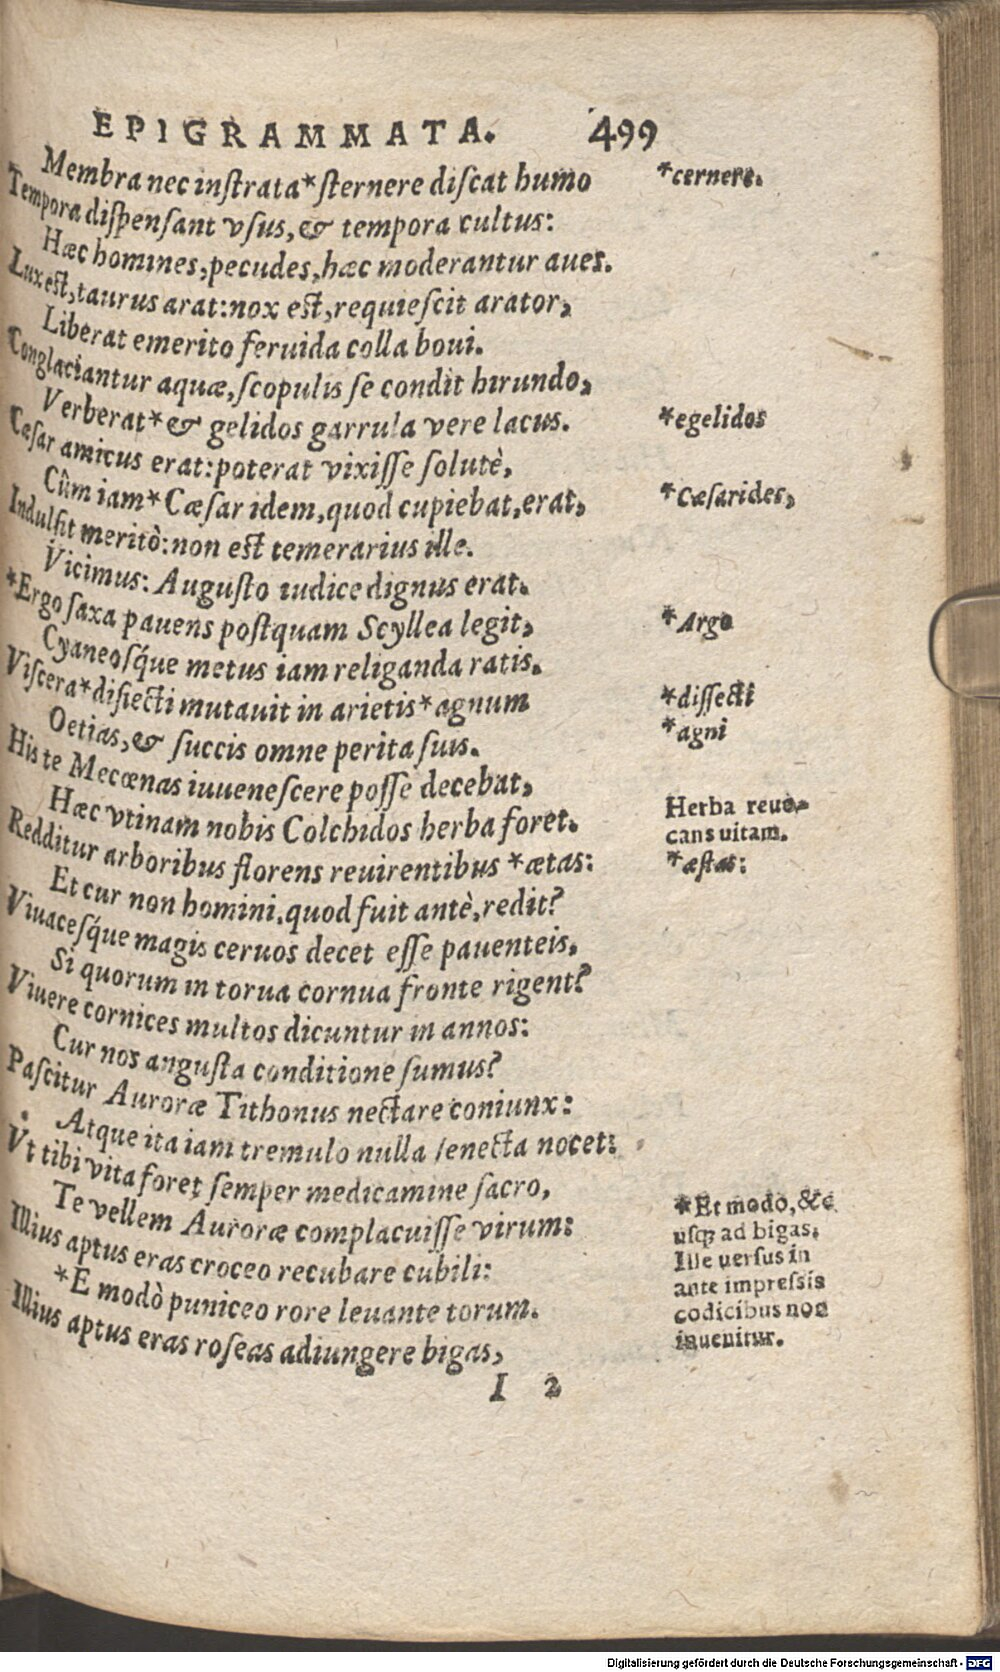 EPIGRAMMATA. 499
Membra nec inſtrata*ſternere diſcat humo
*cernere.
Tempora diſpenſant vſus, & tempora cultus:
Hæc homines, pecudes, hæc moderantur aues.
Lux eſt, taurus arat: nox eſt, requieſcit arator,
Liberat emerito feruida colla boui.
Conglaciantur aquæ, ſcopulis ſe condit hirundo,
Verberat*& gelidos garrula vere lacus.
*egelidos
Cæſar amicus erat: poterat vixiſſe ſolutè,
Cûm iam*Cæſar idem, quod cupiebat, erat,
*Cæſarides,
Indulſit meritò: non eſt temerarius ille.
Vicimus: Auguſto iudice dignus erat.
*Ergo ſaxa pauens poſtquam Scyllea legit,
*Argo
Cyaneoſq́ue metus iam religanda ratis.
Viſcera*diſiecti mutauit in arietis*agnum
*diſſecti
Oetias, & ſuccis omne perita ſuis.
*agni
His te Mecœnas iuueneſcere poſſe decebat,
Hæc vtinam nobis Colchidos herba foret.
Herba reuo-
cans uitam.
Redditur arboribus florens reuirentibus *ætas:
*æſtas:
Et cur non homini, quod fuit antè, redit?
Viuaceſq́ue magis ceruos decet eſſe pauenteis,
Si quorum in torua cornua fronte rigent?
Viuere cornices multos dicuntur in annos:
Cur nos anguſta conditione ſumus?
Paſcitur Auroræ Tithonus nectare coniunx:
Atque ita iam tremulo nulla ſenecta nocet:
Vt tibi vita foret ſemper medicamine ſacro,
Te vellem Auroræ complacuiſſe virum:
Illius aptus eras croceo recubare cubili:
*E modò puniceo rore leuante torum.
Illius aptus eras roſeas adiungere bigas,
*Et modo, &c
uſq; ad bigas.
Ille uerſus in
ante impreſsis
codicibus non
inuenitur.
I 2
Digitalisierung gefördert durch die Deutsche Forschungsgemeinschaft - DFG